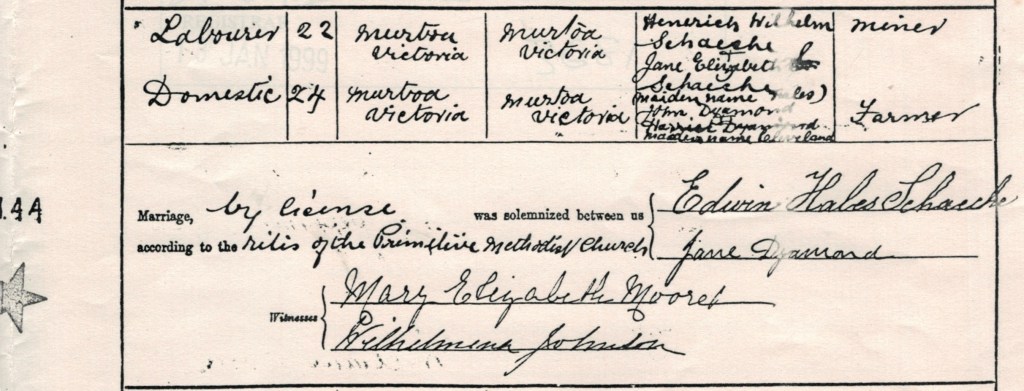 Labourer 22 Murtoa Victoria Murtoa Victoria Heinerich Wilhelm Schaeche Miner
Jane Elizabeth
Schaeche
Domestic 24 Murtoa Victoria Murtoa Victoria (maiden name Hales)
John Dyamond Farmer
Harriet Dyamond
maiden name Cleveland
.44
Marriage, by license was solemnized between us { Edwin Hales Schaeche
according to the rites of the Primitive Methodist Church Jane Dyamond
Witnesses { Mary Elizabeth
Wilhelmena Johnson